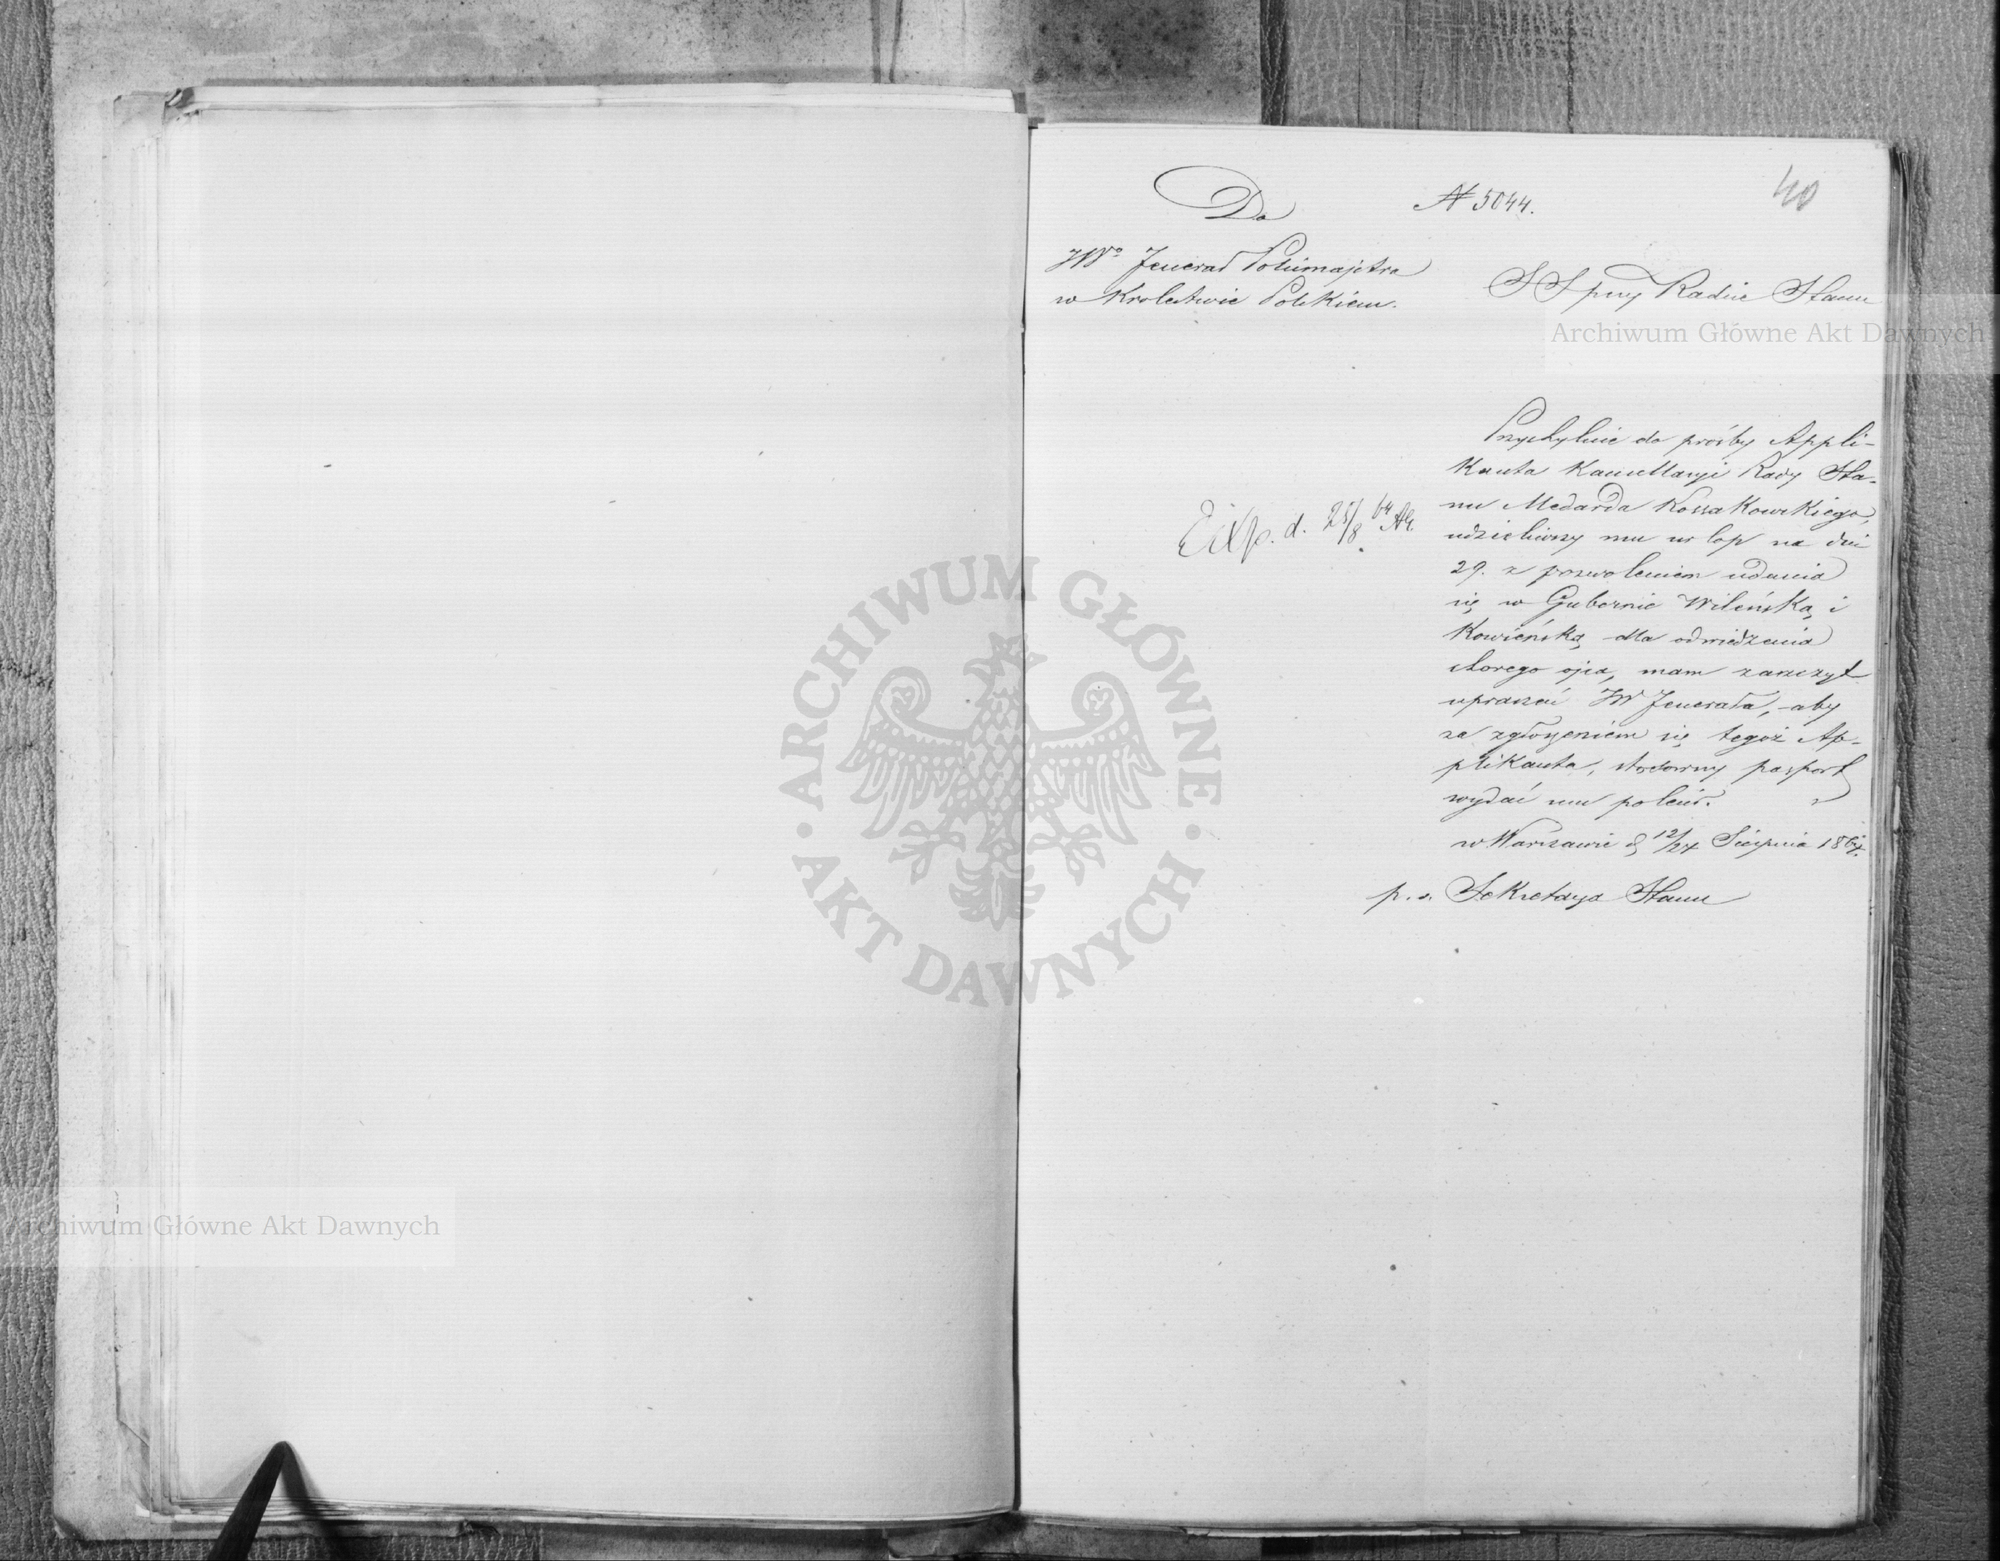 40
Do
N 5044.
JWo Jenerał Policmajstra
w Królestwie Polskiem.
SS przy Radzie Stanu
Archiwum Główne Akt Dawnych
Przychylnie do prośby Appli-
kanta Kancellaryi Rady Sta-
nu Medarda Kossakowskiego,
udzieliwszy mu urlop na dni
29. z pozwoleniem udania
się w Gubernie Wileńską i
Kowieńską dla odwiedzenia
chorego ojca, mam zaszczyt
upraszać JW Jenerała, aby
za zgłoszeniem się tegoż Ap-
plikanta, stosowny pasport
wydać mu polecił.
w Warszawie d. 12/24 Sierpnia 1864.
p. o. Sekretarza Stanu
Exp. d. 25/8 64
ARCHIWUM GŁÓWNE
AKT DAWNYCH
Archiwum Główne Akt Dawnych